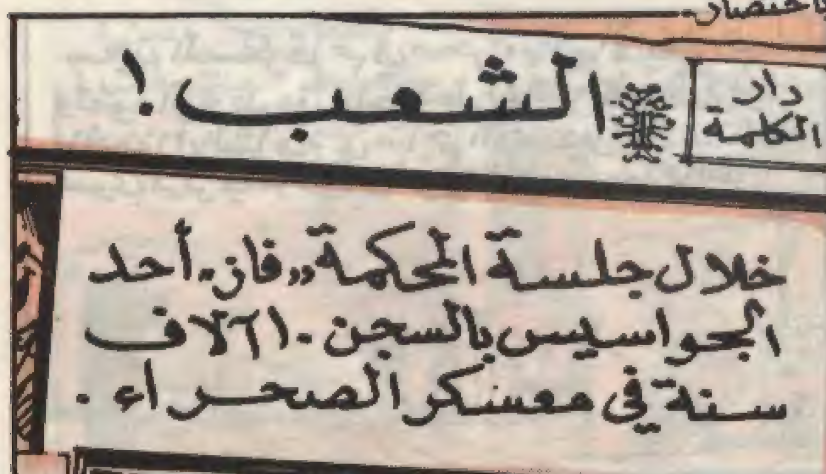 باختصار -
دار
الكلمة
الشعب !
خلال جلسة المحكمة ,, فاز ,, أحد
الجواسيس بالسجن ١٠ آلاف
سنة في معسكر الصحراء .